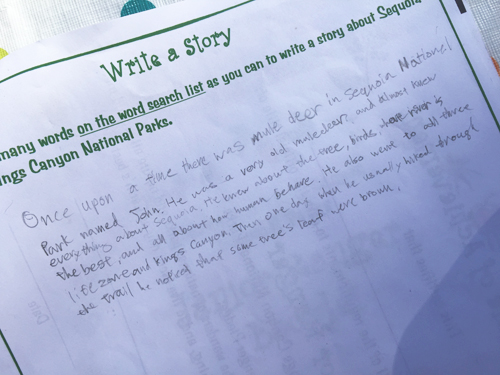 Write a Story
many words on the word search list as you can to write a story about Sequoia
ngs Canyon National Parks.
Once upon a time there was mule deer in Sequoia National
Park named John. He was a very old muledeer, and almost knew
everything about Sequoia. He knew about the tree, birds, river is
the best, and all about how human behave. He also went to all three
life zone and King's Canyon. Then one day when he usually hiked through
the trail he noticed that some tree's leaf were brown.